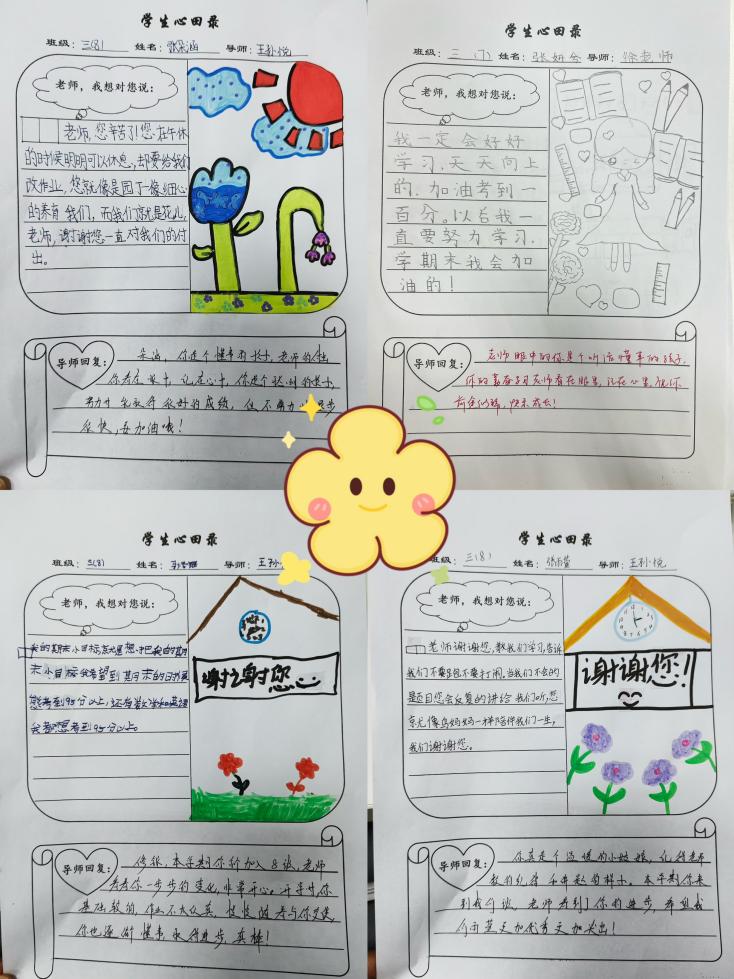 学生心田录
班级：三(8) 姓名：张朵涵 导师：王孙悦
老师，我想对您说：
老师，您辛苦了！您在午休
的时候明明可以休息，却要给我们
改作业，您就像是园丁一像细心
的养育我们，而我们就是花儿，
老师，谢谢您一直对我们的付
出。
导师回复：
朵涵，你是个懂事的孩子，老师的付出
你看在眼中，记在心中，你是个聪明的孩子，
努力 能取得很好的成绩，但不努力 退步
很快，要加油哦！
学生心田录
班级：三(7) 姓名：张妍 导师：徐老师
老师，我想对您说：
我一定会好好
学习，天天向上
的，加油考到一
百分。以后我一
直要努力学习，
学期末我会加
油的！
导师回复：
老师眼中的你是个听话懂事的孩子，
你的青春 老师看在眼里，记在心里，祝你
前程似锦，快乐成长！
学生心田录
班级：三(8) 姓名： 导师：王孙
老师，我想对您说：
我的期末小目标就是想 把我的期
末小目标我希望到期末的日我
能考到95分以上，还有数学 英语
我都想考到95分以上。
谢谢您
导师回复：
本学期你新加入8班，老师
看着你一步步的变化，非常开心。开学时你
基础较弱，作业不太认真，慢慢 着与你交流，
你也逐渐懂事 取得进步，真棒！
学生心田录
班级：三(8) 姓名：张雨萱 导师：王孙悦
老师，我想对您说：
老师谢谢您，教我们学习，告诉
我们不要跑不要打闹，当我们不会的
题目您会反复的讲给我们听，您
就像鸟妈妈一样陪伴我们一生，
我们谢谢您。
谢谢您！
导师回复：
你真是个温暖的小姑娘，记得老师
教的 和 的样子。本学期你来
到我们班，老师看到了你的进步，希望我
们 萱 加优秀 加突出！